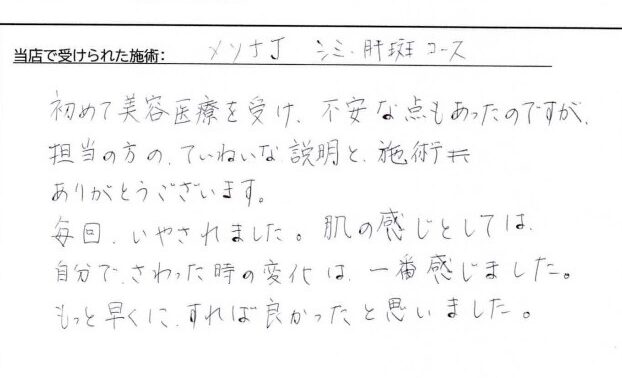 当店で受けられた施術: メソナJ シミ・肝斑コース
初めて美容医療を受け、不安な点もあったのですが、
担当の方の、ていねいな説明と、施術
ありがとうございます。
毎回、いやされました。肌の感じとしては、
自分で、さわった時の変化は、一番感じました。
もっと早くに、すれば良かったと思いました。